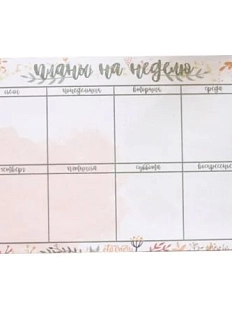 планы на неделю
понедельник вторник среда
четверг пятница суббота воскресенье